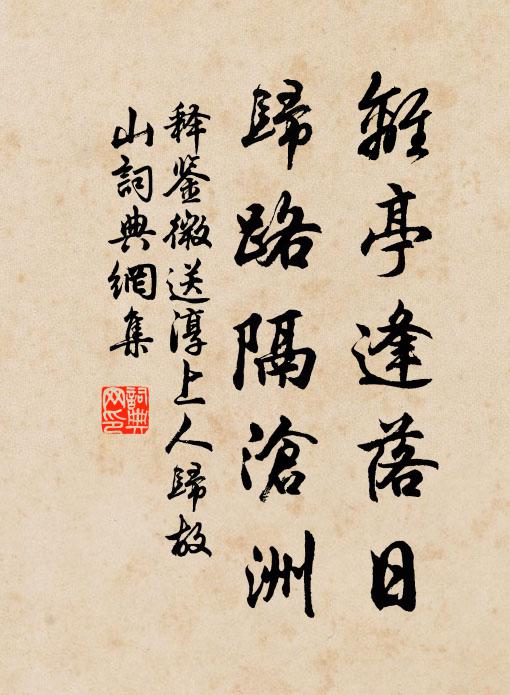 離亭逢落日
歸路隔滄洲
释鉴徽送淳上人歸故
山詞典網集
詞典
网印